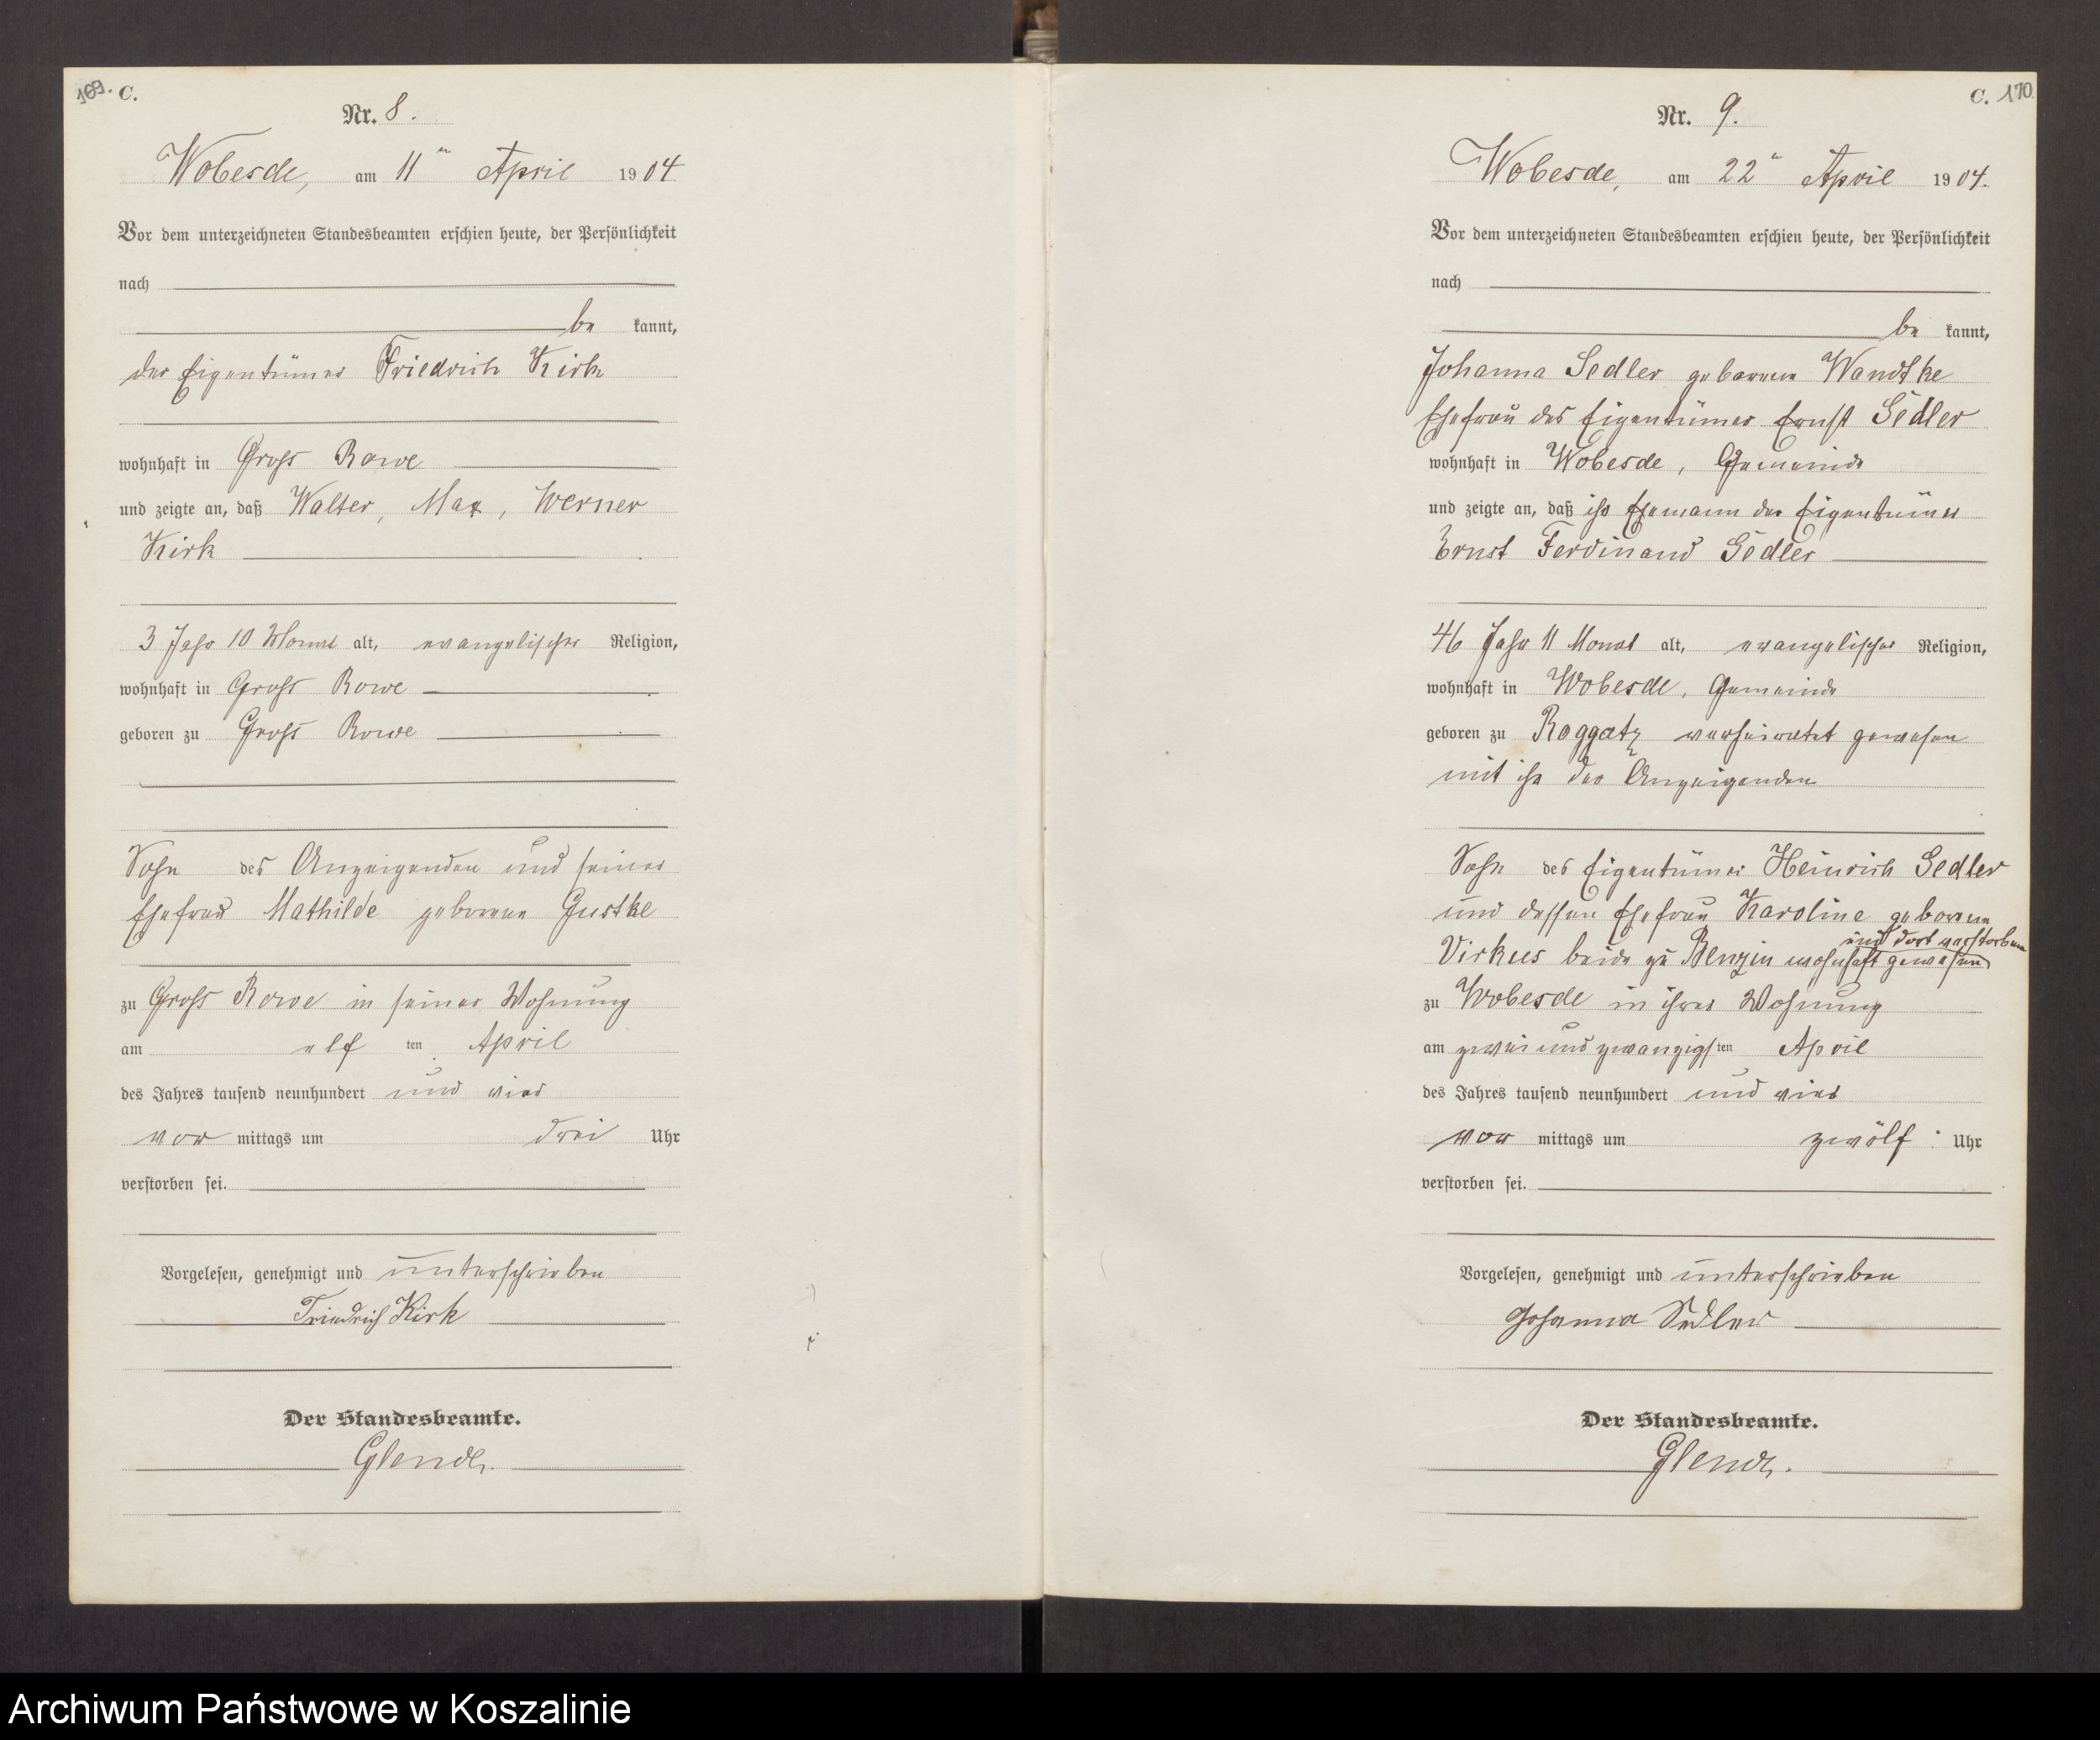 169. C.
Nr. 8.
Wobesde, am 11ten April 1904
Vor dem unterzeichneten Standesbeamten erschien heute, der Persönlichkeit
nach
be kannt,
der Eigentümer Friedrich Kirk
wohnhaft in Gross Rowe
und zeigte an, daß Walter, Max, Werner
Kirk
3 Jahr 10 Monat alt, evangelischer Religion,
wohnhaft in Gross Rowe
geboren zu Gross Rowe
Sohn des Anzeigenden und seiner
Ehefrau Mathilde geborene Gustke
zu Gross Rowe in seiner Wohnung
am elf ten April
des Jahres tausend neunhundert und vier
vor mittags um drei Uhr
verstorben sei.
Vorgelesen, genehmigt und unterschrieben
Friedrich Kirk
Der Standesbeamte.
C. 170
Nr. 9.
Wobesde, am 22ten April 1904.
Vor dem unterzeichneten Standesbeamten erschien heute, der Persönlichkeit
nach
be kannt,
Johanna Sedler geborene Wandtke
Ehefrau des Eigentümer Ernst Sedler
wohnhaft in Wobesde, Gemeinde
und zeigte an, daß ihr Ehemann der Eigentümer
Ernst Ferdinand Sedler
46 Jahr 11 Monat alt, evangelischer Religion,
wohnhaft in Wobesde, Gemeinde
geboren zu Roggatz verheiratet gewesen
mit ihr der Anzeigenden
Sohn des Eigentümer Heinrich Sedler
und dessen Ehefrau Karoline geborene
und dort verstorben
Virkus beide zu Benzin wohnhaft gewesen
zu Wobesde in ihrer Wohnung
am zwei und zwanzigsten April
des Jahres tausend neunhundert und vier
vor mittags um zwölf Uhr
verstorben sei.
Vorgelesen, genehmigt und unterschrieben
Johanna Sedler
Der Standesbeamte.
Archiwum Państwowe w Koszalinie